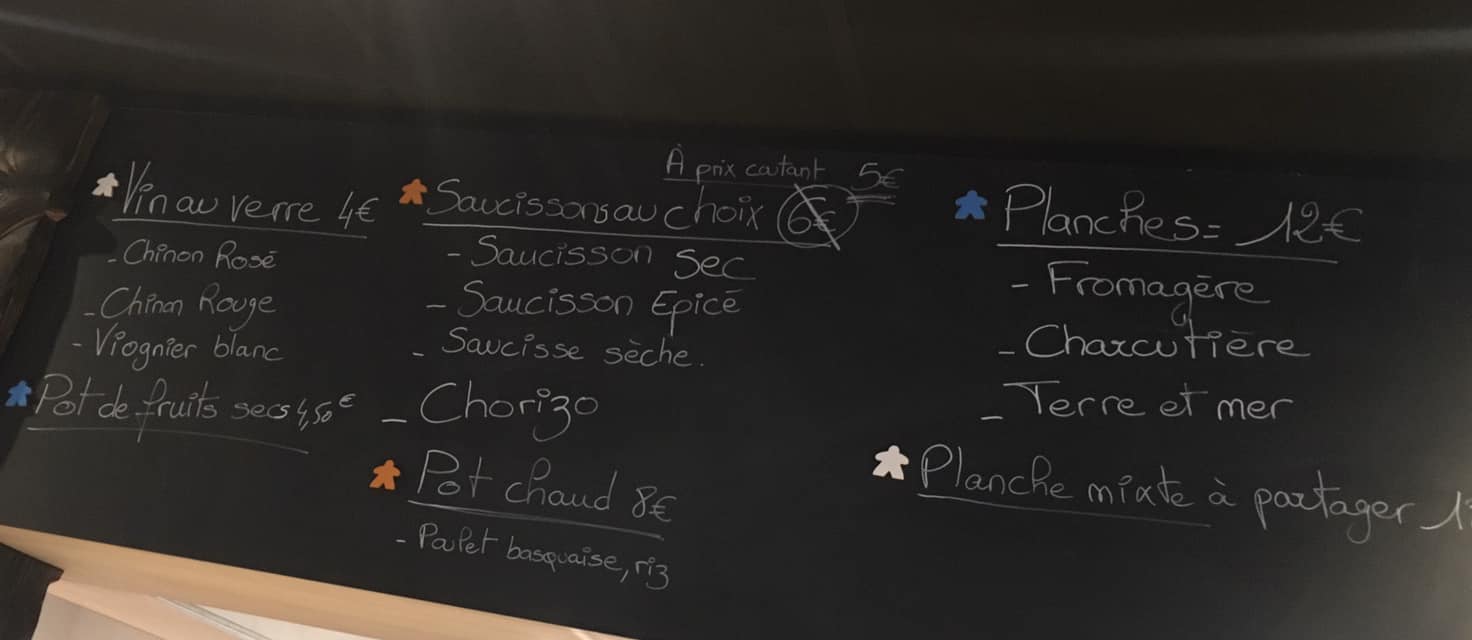 Vin au verre 4€
- Chinon Rosé
- Chinon Rouge
- Viognier blanc
Pot de fruits secs 4,50€
À prix coûtant 5€
Saucissons au choix 6€
- Saucisson sec
- Saucisson Epicé
- Saucisse sèche.
- Chorizo
Pot chaud 8€
- Poulet basquaise, riz
Planches = 12€
- Fromagère
- Charcutière
- Terre et mer
Planche mixte à partager